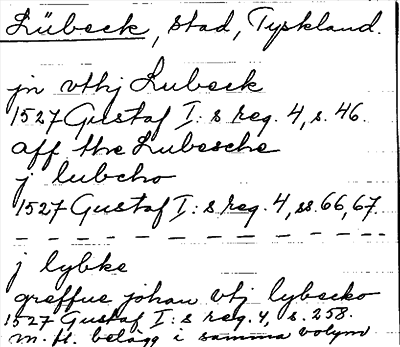 Lübeck, stad, Tyskland.
jn vthj Lubeck
1527 Gustaf I:s reg. 4, s. 46.
aff the Lubesche
j lubcho
1527 Gustaf I:s reg. 4, ss. 66, 67.
j lybke
greffue johan vtj lybecko
1527 Gustaf I:s reg. 4, s. 258.
m. fl. belägg i samma volym